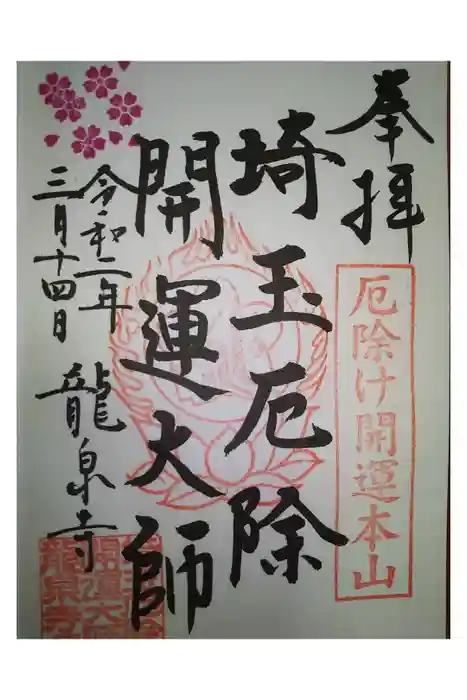 奉拝
厄除け開運本山
埼玉厄除
開運大師
令和二年
三月十四日
龍泉寺